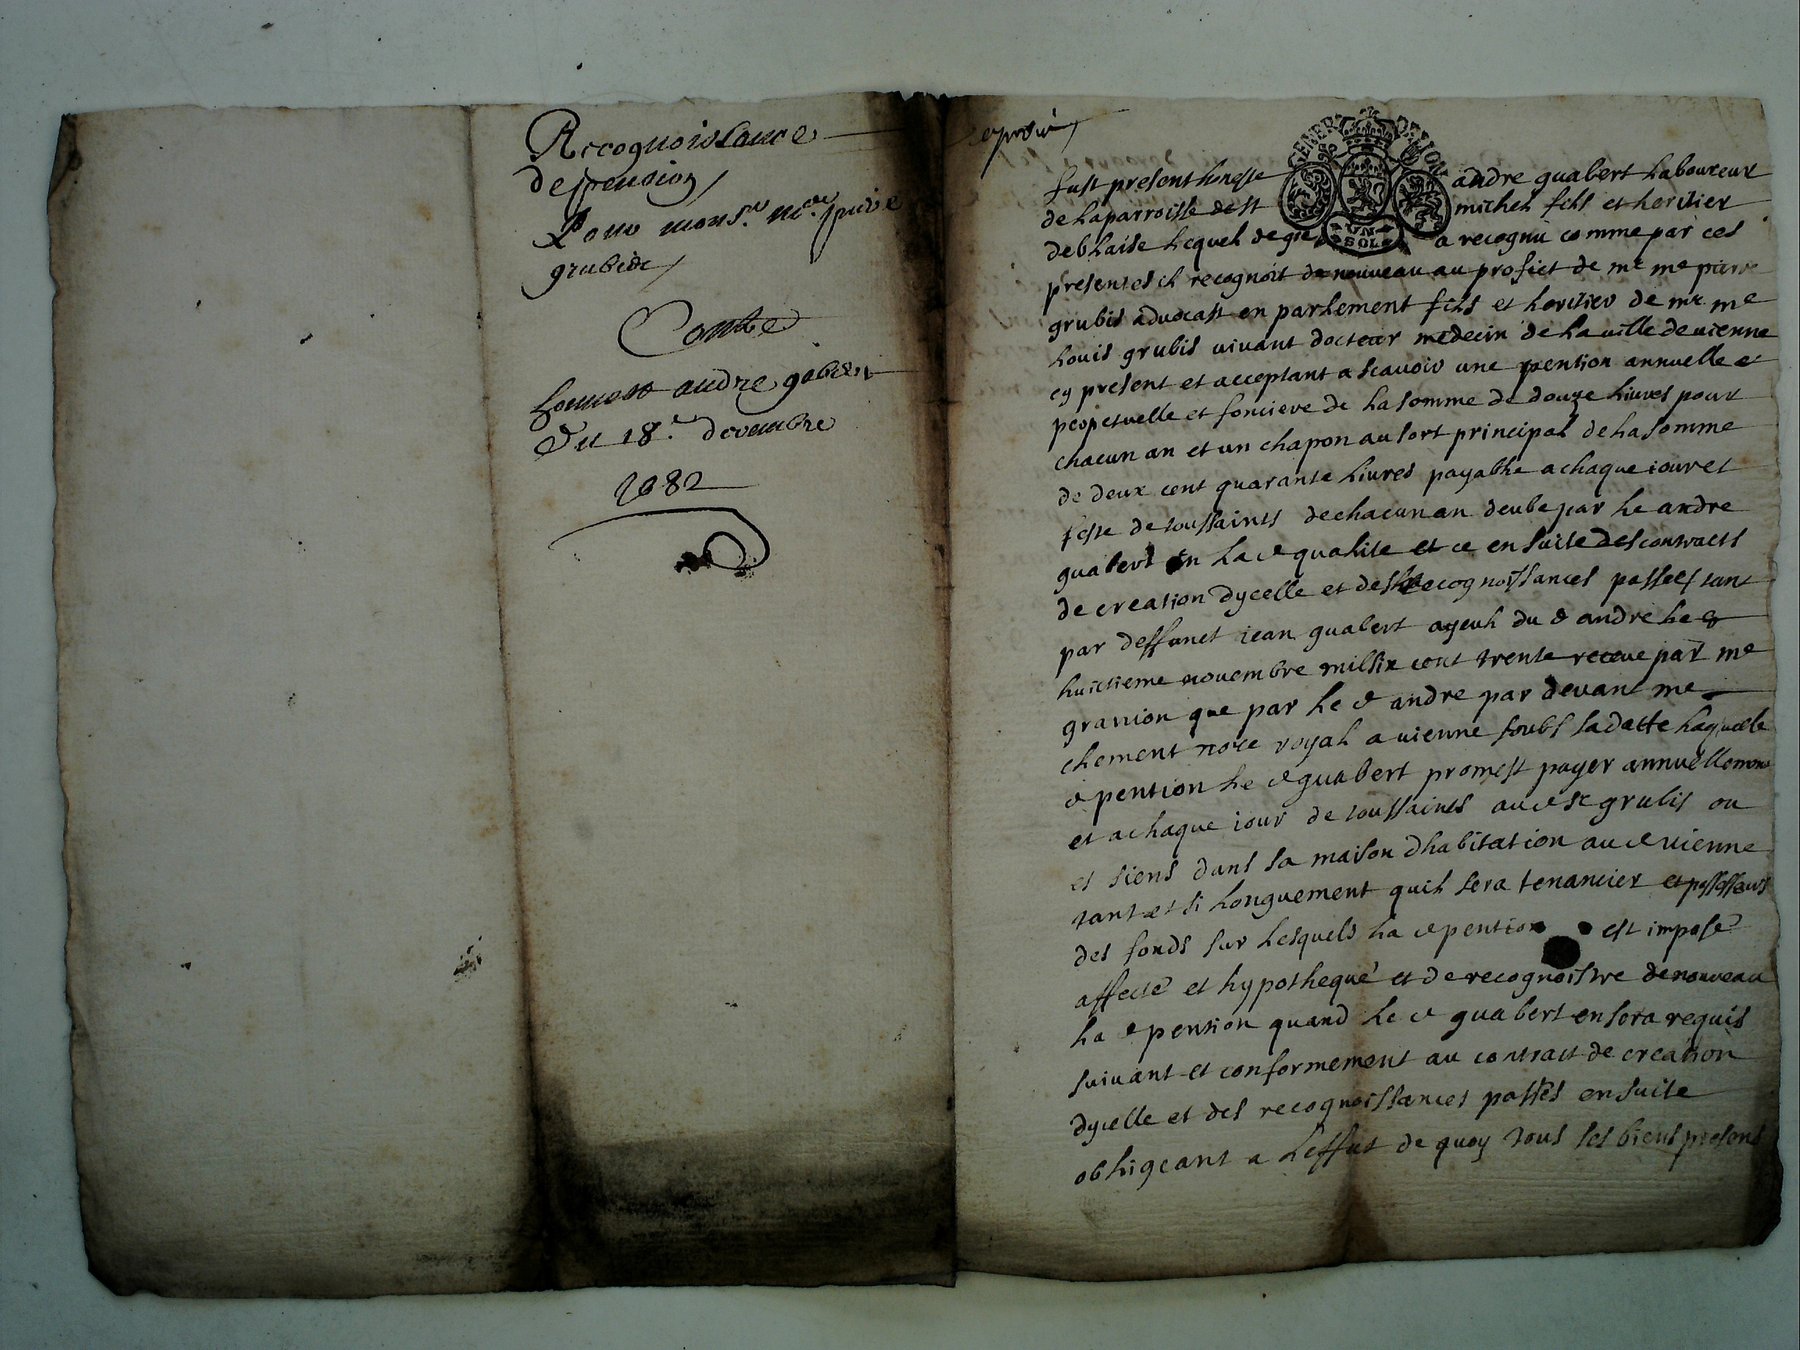 Recognoissance
de pension
Pour monsr. me. pierre
grubis
Contre
honneste andre gabert
Du 18e. decembre
1682
GENER DE LYON
UN
SOL
fust present honeste andre guabert laboureur
de la parroisse de st michel fils et heritier
de blaise lequel de gre a recognu comme par ces
presentes il recognoit de nouveau au profict de mr me pierre
grubis advocast en parlement fils et heritier de mr me
louis grubis vivant docteur medecin de la ville de vienne
cy present et acceptant a scavoir une pention annuelle et
perpetuelle et fonciere de la somme de douze livres pour
chacun an et un chapon au sort principal de la somme
de deux cent quarante livres payable a chaque iour et
feste de toussaints de chacun an deube par le andre
guabert en la d qualite et ce en suite des contracts
de creation dycelle et des recognoissances passees tant
par deffunct iean guabert ayeul du d andre le
huictieme novembre mil six cent trente receue par me
gravion que par le d andre par devant me
chement nore royal a vienne soubs sa datte laquelle
d pention le d guabert promest payer annuellement
et a chaque iour de toussaints au d sr grubis ou
es siens dans sa maison dhabitation au d vienne
tant et si longuement quil sera tenancier et possesseurs
des fonds sur lesquels la d pention est imposé
affecté et hypothequé et de recognoistre de nouveau
la d pention quand le d guabert en sera requis
suivant et conformement au contract de creation
dycelle et des recognoissances passés ensuite
obligeant a leffect de quoy tous ses biens presens